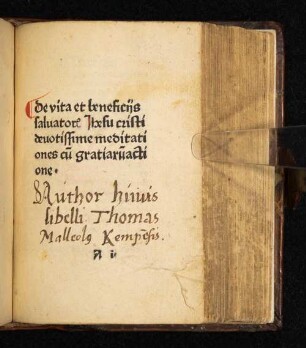 De vita et beneficijs
saluatorꝭ Jhesu cristi
deuotissime meditati
ones cū gratiarūacti
one.
Author huius
libelli Thomas
Malleolꝰ Kempēsis.
A i